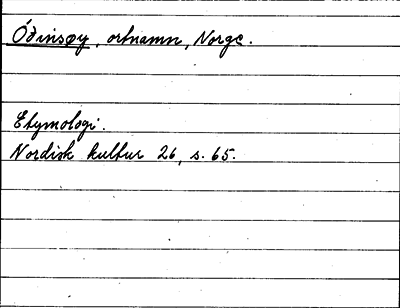 Óðinsøy, ortnamn, Norge.
Etymologi.
Nordisk kultur 26, s. 65.